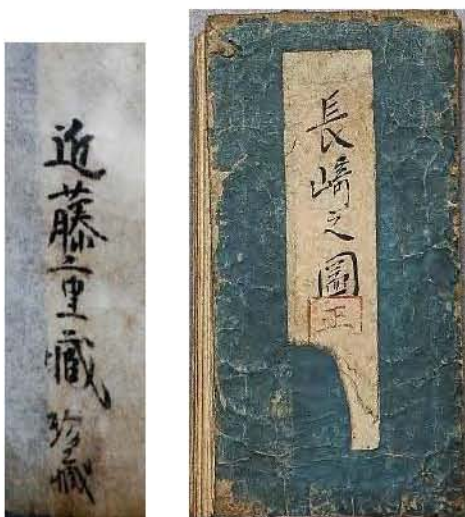 近藤重藏珍藏
長﨑之圖
正